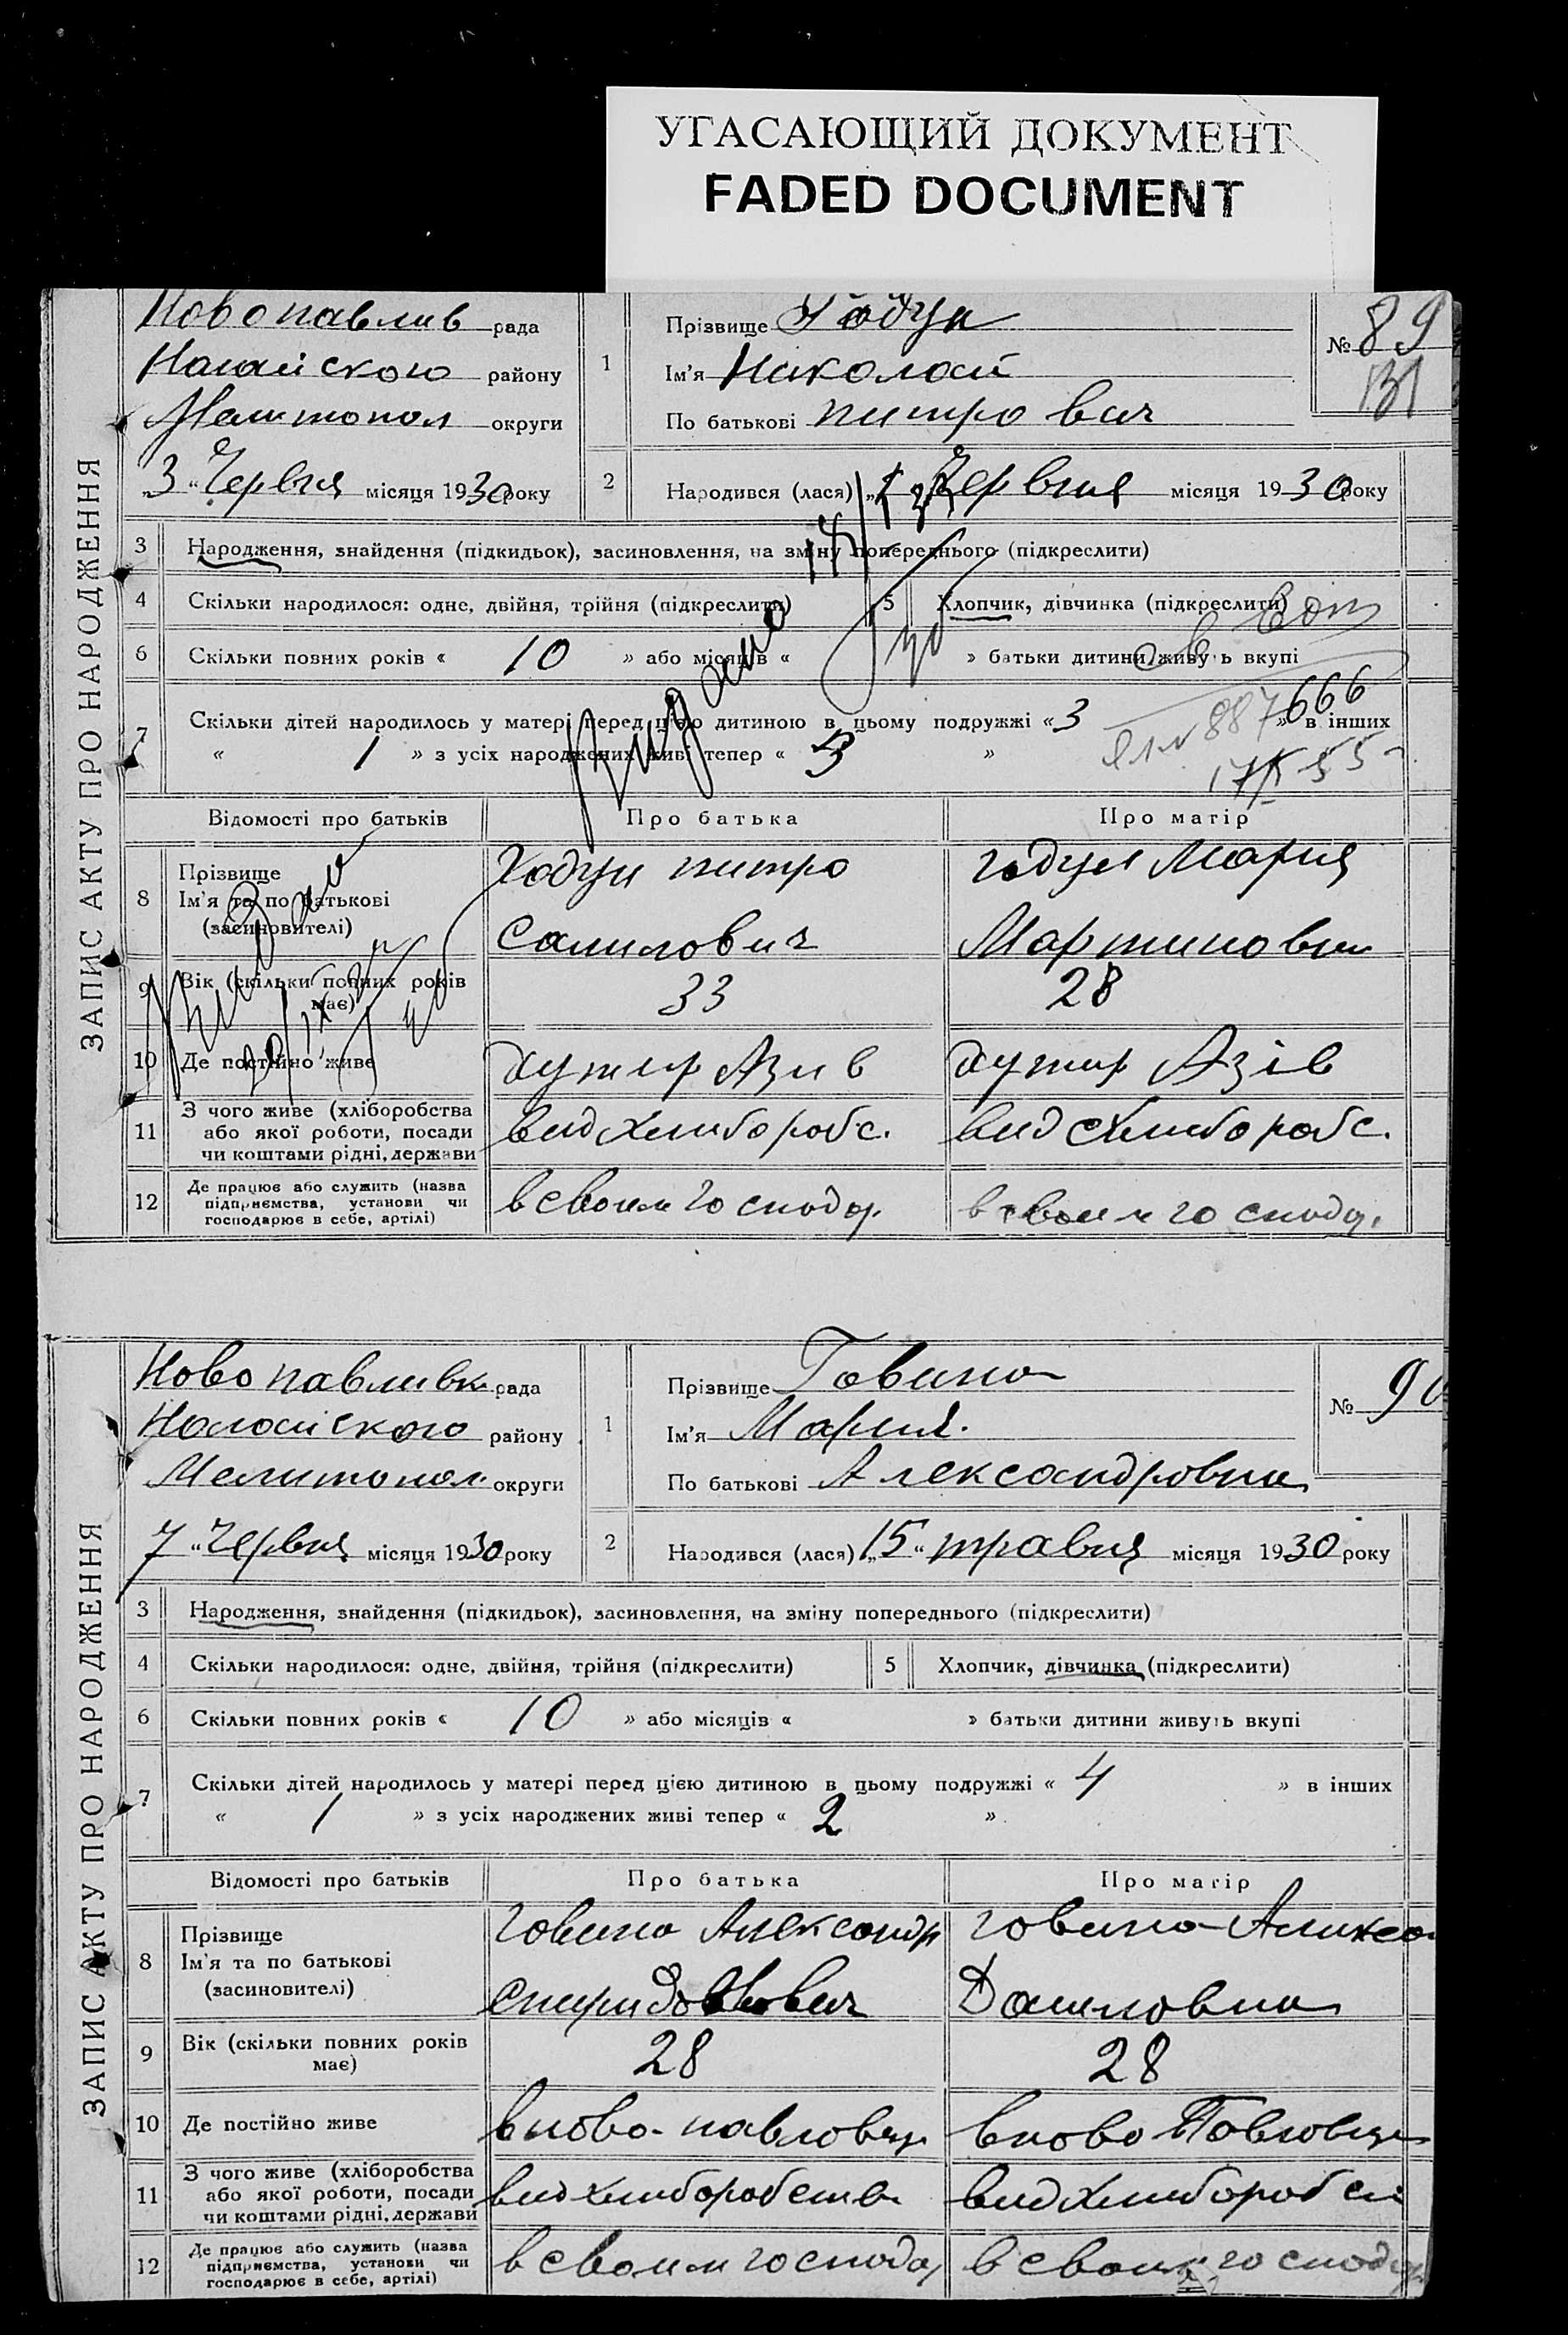 УГАСАЮЩИЙ ДОКУМЕНТ
FADED DOCUMENT
ЗАПИС АКТУ ПРО НАРОДЖЕННЯ
Новопавлив рада
Нагайского району
Мелитопол округи
„3“ Червня місяця 1930 року
1
Прізвище Годун
Ім'я Николай
По батькові питрович
№ 89
131
2 Народився (лася) „1“ Червня місяця 1930 року
3 Народження, знайдення (підкидьок), засиновлення, на зміну попереднього (підкреслити)
4 Скільки народилося: одне, двійня, трійня (підкреслити) 5 Хлопчик, дівчинка (підкреслити)
6 Скільки повних років « 10 » або місяців « » батьки дитини живуть вкупі
7 Скільки дітей народилось у матері перед цією дитиною в цьому подружжі « 3 » в інших
« 1 » з усіх народжених живі тепер « 3 »
Видано
887666
Відомості про батьків Про батька Про матір
8 Прізвище
Ім'я та по батькові
(засиновителі)
Ходун питро
Самилович
годун Мария
Мартиновна
Видано
9 Вік (скільки повних років має) 33 28
10 Де постійно живе хутир Азив хутир Азів
11 З чого живе (хліборобства
або якої роботи, посади
чи коштами рідні, держави
вид хлиборобс. вид схлиборобс.
12 Де працює або служить (назва
підприємства, установи чи
господарює в себе, артілі)
в своим господар. в своим господ.
ЗАПИС АКТУ ПРО НАРОДЖЕННЯ
Новопавливк. рада
Нагайского району
Мелитопол. округи
„7“ Червня місяця 1930 року
1
Прізвище Говина
Ім'я Мария.
По батькові Александровна
№ 90
2 Народився (лася) „15“ травня місяця 1930 року
3 Народження, знайдення (підкидьок), засиновлення, на зміну попереднього (підкреслити)
4 Скільки народилося: одне, двійня, трійня (підкреслити) 5 Хлопчик, дівчинка (підкреслити)
6 Скільки повних років « 10 » або місяців « » батьки дитини живуть вкупі
7 Скільки дітей народилось у матері перед цією дитиною в цьому подружжі « 4 » в інших
« 1 » з усіх народжених живі тепер « 2 »
Відомості про батьків Про батька Про матір
8 Прізвище
Ім'я та по батькові
(засиновителі)
говина Александр
Спиридонович
говина
Даниловна
9 Вік (скільки повних років має) 28 28
10 Де постійно живе в ново-павловци в ново Павловци
11 З чого живе (хліборобства
або якої роботи, посади
чи коштами рідні, держави
вид хлиборобства вид хлиборобс
12 Де працює або служить (назва
підприємства, установи чи
господарює в себе, артілі)
в своим господар в своим господар